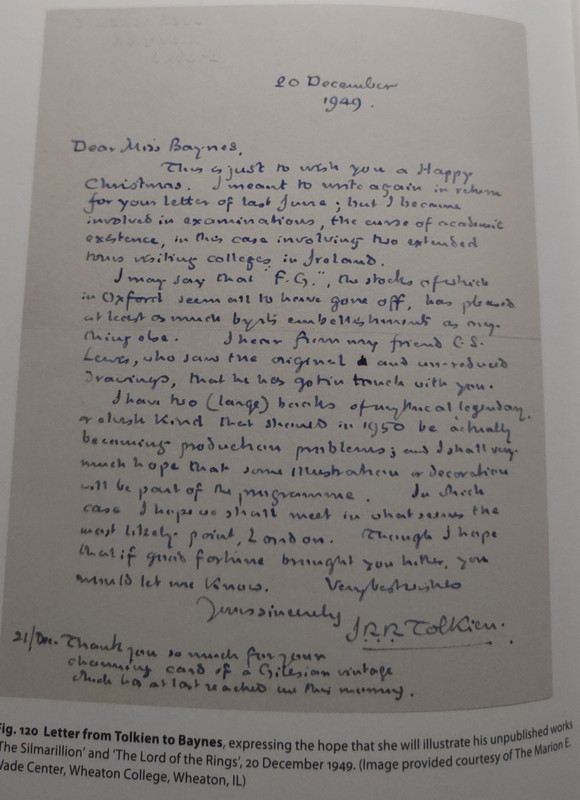 20 December
1949.
Dear Miss Baynes,
This is just to wish you a Happy
Christmas. I meant to write again in return
for your letter of last June; but I became
involved in examinations, the curse of academic
existence, in this case involving two extended
tours visiting colleges in Ireland.
I may say that "F.G.", the stocks of which
in Oxford seem all to have gone off, has pleased
at least as much by its embellishments as any-
thing else. I hear from my friend C.S.
Lewis, who saw the original and un-reduced
drawings, that he has got in touch with you.
I have two (large) books of mythical legendary
or elvish kind that should in 1950 be actually
becoming production problems; and I shall very
much hope that some illustration or decoration
will be part of the programme. In which
case I hope we shall meet in what seems the
most likely point, London. Though I hope
that if good fortune brought you hither, you
would let me know. Very best wishes
Yours sincerely
J.R.R. Tolkien.
21/Dec. Thank you so much for your
charming card of a Gilesian vintage
which has at last reached me this morning.
Fig. 120 Letter from Tolkien to Baynes, expressing the hope that she will illustrate his unpublished works
'The Silmarillion' and 'The Lord of the Rings', 20 December 1949. (Image provided courtesy of The Marion E.
Wade Center, Wheaton College, Wheaton, IL)